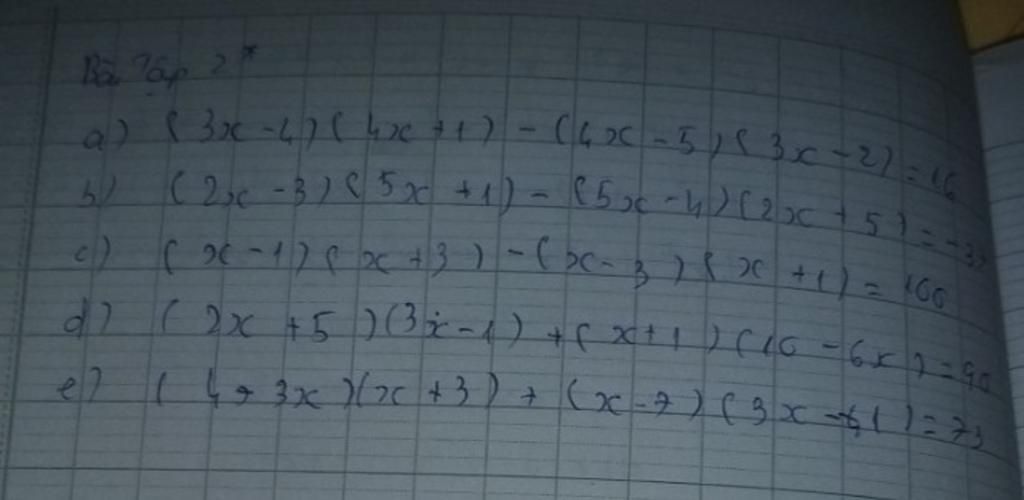 Bài Tập 2*
a) (3x - 4)(4x + 1) - (4x - 5)(3x - 2) = 16
b) (2x - 3)(5x + 1) - (5x - 4)(2x + 5) =
c) (x - 1)(x + 3) - (x - 3)(x + 1) = 100
d) (2x + 5)(3x - 1) + (x + 1)(10 - 6x) = 90
e) (4 - 3x)(x + 3) + (x - 7)(3x 1) = 73